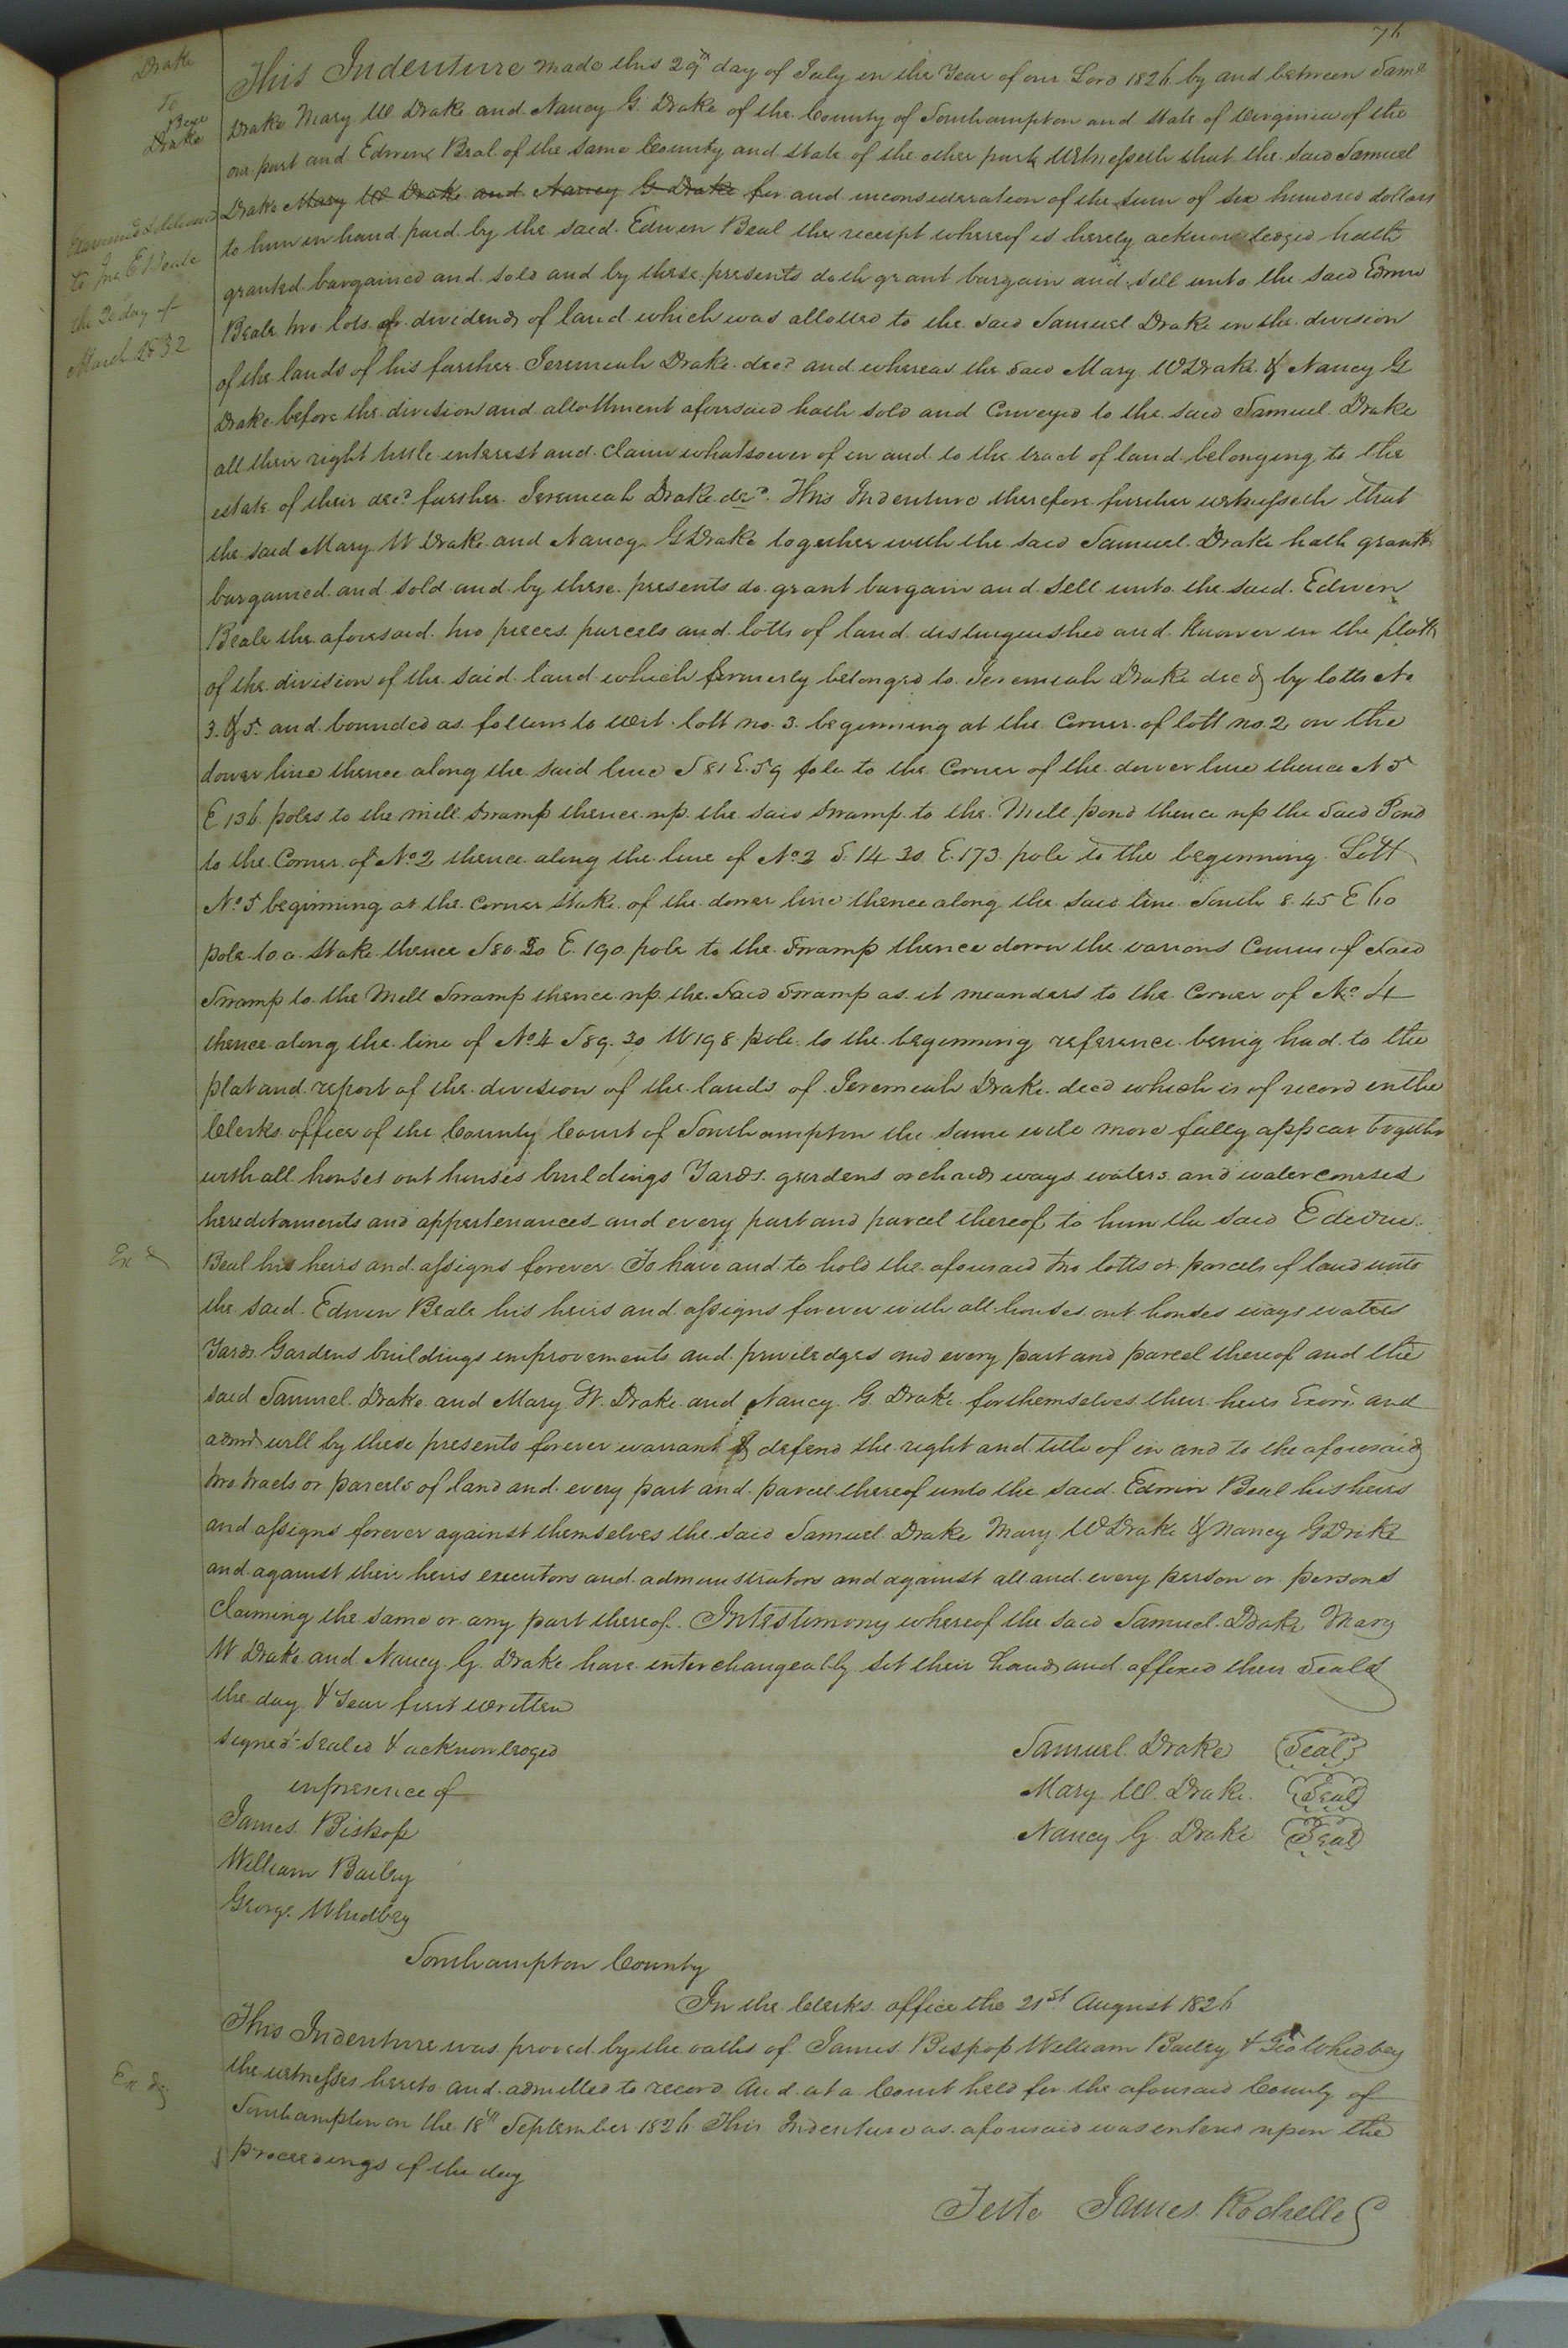 76
Drake
To
Beal
Drake
Examined & delivered
to Jno. E Beale
the 20 day of
March 1832
This Indenture made this 29th day of July in the Year of our Lord 1826 by and between Saml
Drake Mary W Drake and Nancy G. Drake of the County of Southampton and State of Virginia of the
one part and Edwin Beal of the same County and State of the other part Witnesseth that the said Samuel
Drake Mary W Drake and Nancy G Drake for and inconsideration of the sum of six hundred dollars
to him in hand paid by the said Edwin Beal the receipt whereof is hereby acknowledged hath
granted bargained and sold and by these presents doth grant bargain and sell unto the said Edwin
Beale two lots or dividends of land which was allotted to the said Samuel Drake in the division
of the lands of his farther Jeremiah Drake decd and whereas the said Mary W Drake & Nancy G
Drake before the division and allottment aforesaid hath sold and Conveyed to the said Samuel Drake
all their right title interest and claim whatsoever of in and to the tract of land belonging to the
estate of their decd farther Jeremiah Drake decd. This Indenture therefore further witnesseth that
the said Mary W Drake and Nancy G Drake together with the said Samuel Drake hath grantd
bargained and sold and by these presents do grant bargain and sell unto the said Edwin
Beale the aforesaid two pieces parcels and lotts of land distinguished and known in the platt
of the division of the said land which formerly belonged to Jeremiah Drake decd by lotts No
3 & 5 and bounded as follows to wit lott no. 3 beginning at the Corner of lott no. 2 on the
dower line thence along the said line S 81 E. 59 pole to the Corner of the dower line thence N 5
E 136 poles to the mill swamp thence up the said swamp to the Mill pond thence up the said Pond
to the Corner of No. 2 thence along the line of No. 2 S. 14 30 E. 173 pole to the beginning Lott
No. 5 beginning at the corner stake of the dower line thence along the said line South 8.45 E 60
pole to a stake thence S 80.30 E. 190 pole to the Swamp thence down the various Courses of Said
Swamp to the Mill Swamp thence up the Said Swamp as it meanders to the Corner of No. 4
thence along the line of No. 4 S 89.30 W 198 pole to the beginning reference being had to the
plat and report of the division of the lands of Jeremiah Drake decd which is of record in the
Clerks office of the County Court of Southampton the same will more fully appear together
with all houses out houses buildings Yards gardens orchards ways waters and watercourses
hereditaments and appertenances and every part and parcel thereof to him the said Edwin
Ex d
Beal his heirs and assigns forever To have and to hold the aforesaid two lotts or parcels of land unto
the said Edwin Beale his heirs and assigns forever with all houses out houses ways waters
Yards Gardens buildings improvements and priviledges and every part and parcel thereof and the
said Samuel Drake and Mary W. Drake and Nancy G. Drake forthemselves their heirs Exors and
admrs will by these presents forever warrant & defend the right and title of in and to the aforesaid
two tracts or parcels of land and every part and parcel thereof unto the said Edwin Beal his heirs
and assigns forever against themselves the said Samuel Drake Mary W Drake & Nancy G Drake
and against their heirs executors and administrators and against all and every person or persons
Claiming the same or any part thereof. In Testimony whereof the said Samuel Drake Mary
W Drake and Nancy G. Drake have interchangeably set their hands and affixed their seals
the day & Year first written
signed sealed & acknowledged
in presence of
James Bishop
William Bailey
George Whedbey
Samuel Drake Seal
Mary W. Drake Seal
Nancy G. Drake Seal
Southampton County
In the Clerks office the 21st August 1826
This Indenture was proved by the oaths of James Bishop William Bailey & Geo Whedbey
the witnesses hereto and admitted to record And at a Court held for the aforesaid County of
Ex d
Southampton on the 18th September 1826 This Indenture as aforesaid was entered upon the
proceedings of the day
Teste James Rochelle C